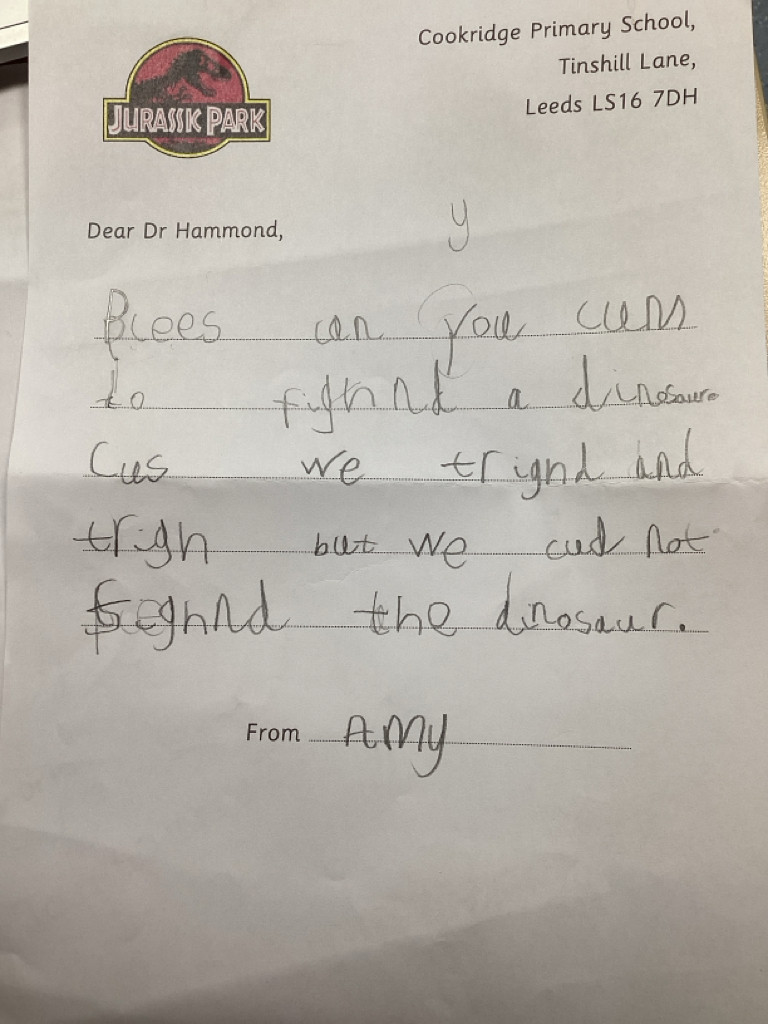 Cookridge Primary School,
Tinshill Lane,
Leeds LS16 7DH
JURASSIK PARK
y
Dear Dr Hammond,
Plees can you cum
to fighnd a dinosaure
Cus we trignd and
trigh but we cud not
feghnd the dinosaur.
From Amy